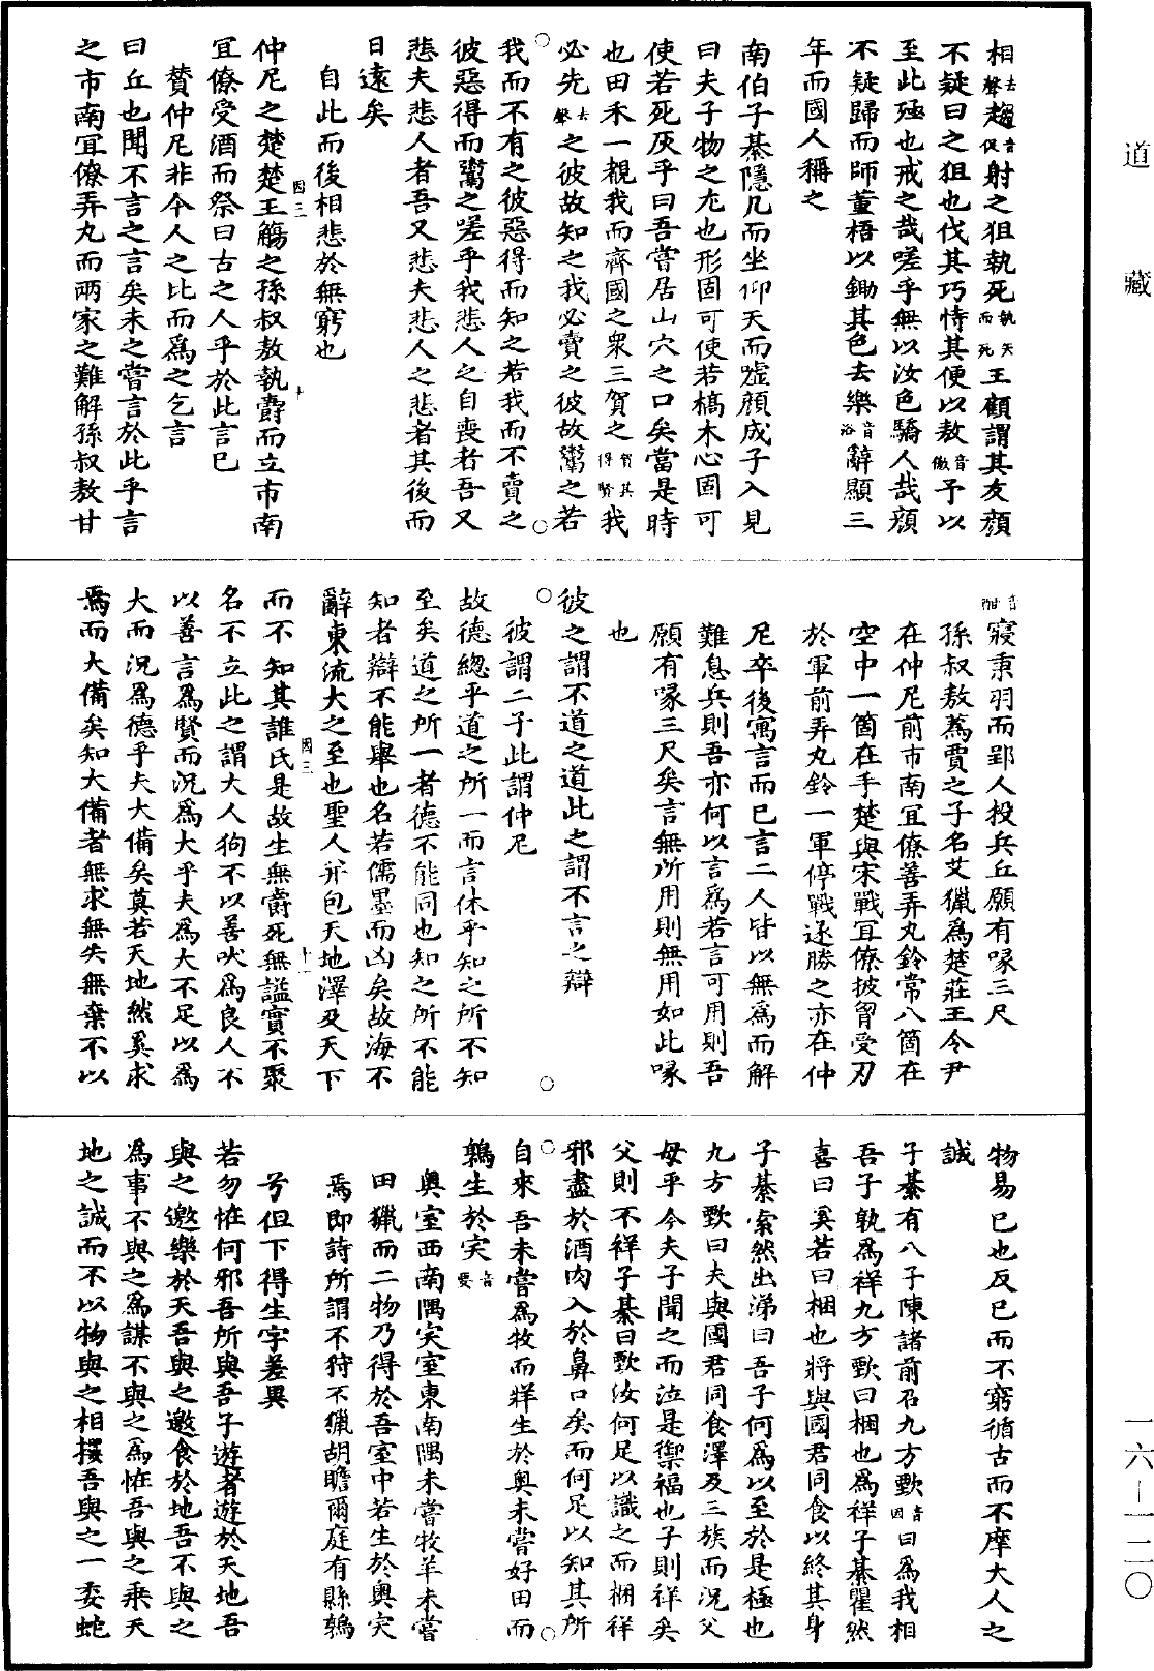 相去聲趨音促射之狙執死執矢而死王顧謂其友顏
不疑曰之狙也伐其巧恃其便以敖音傲予以
至此殛也戒之哉嗟乎無以汝色驕人哉顏
不疑歸而師董梧以鋤其色去樂音洛辭顯三
年而國人稱之
南伯子綦隱几而坐仰天而噓顏成子入見
曰夫子物之尤也形固可使若槁木心固可
使若死灰乎曰吾嘗居山穴之口矣當是時
也田禾一覩我而齊國之衆三賀之賀其得賢我
必先去聲之彼故知之我必賣之彼故鬻之若
我而不有之彼惡得而知之若我而不賣之
彼惡得而鬻之嗟乎我悲人之自喪者吾又
悲夫悲人者吾又悲夫悲人之悲者其後而
日遠矣
自此而後相悲於無窮也
仲尼之楚楚王觴之孫叔敖執爵而立市南
宜僚受酒而祭曰古之人乎於此言已
贊仲尼非今人之比而爲之乞言
曰丘也聞不言之言矣未之嘗言於此乎言
之市南宜僚弄丸而兩家之難解孫叔敖甘
音酣寢秉羽而郢人投兵丘願有喙三尺
孫叔敖蔿賈之子名艾獵爲楚莊王令尹
在仲尼前市南宜僚善弄丸鈴常八箇在
空中一箇在手楚與宋戰宜僚披胷受刃
於軍前弄丸鈴一軍停戰遂勝之亦在仲
尼卒後寓言而已言二人皆以無爲而解
難息兵則吾亦何以言爲若言可用則吾
願有喙三尺矣言無所用則無用如此喙
也
彼之謂不道之道此之謂不言之辯
彼謂二子此謂仲尼
故德總乎道之所一而言休乎知之所不知
至矣道之所一者德不能同也知之所不能
知者辯不能舉也名若儒墨而凶矣故海不
辭東流大之至也聖人并包天地澤及天下
而不知其誰氏是故生無爵死無謚實不聚
名不立此之謂大人狗不以善吠爲良人不
以善言爲賢而況爲大乎夫爲大不足以爲
大而況爲德乎夫大備矣莫若天地然奚求
焉而大備矣知大備者無求無失無棄不以
物易己也反己而不窮循古而不摩大人之
誠
子綦有八子陳諸前召九方歅音因曰爲我相
吾子孰爲祥九方歅曰梱也爲祥子綦瞿然
喜曰奚若曰梱也將與國君同食以終其身
子綦索然出涕曰吾子何爲以至於是極也
九方歅曰夫與國君同食澤及三族而況父
母乎今夫子聞之而泣是禦福也子則祥矣
父則不祥子綦曰歅汝何足以識之而梱祥
邪盡於酒肉入於鼻口矣而何足以知其所
自來吾未嘗爲牧而牂生於奧未嘗好田而
鶉生於宎音要
奧室西南隅宎室東南隅未嘗牧羊未嘗
田獵而二物乃得於吾室中若生於奧宎
焉即詩所謂不狩不獵胡瞻爾庭有縣鶉
兮但下得生字差異
若勿怪何邪吾所與吾子遊者遊於天地吾
與之邀樂於天吾與之邀食於地吾不與之
爲事不與之爲謀不與之爲怪吾與之乘天
地之誠而不以物與之相攖吾與之一委蛇
因三
十
因三
十一
道藏
一六–一二〇